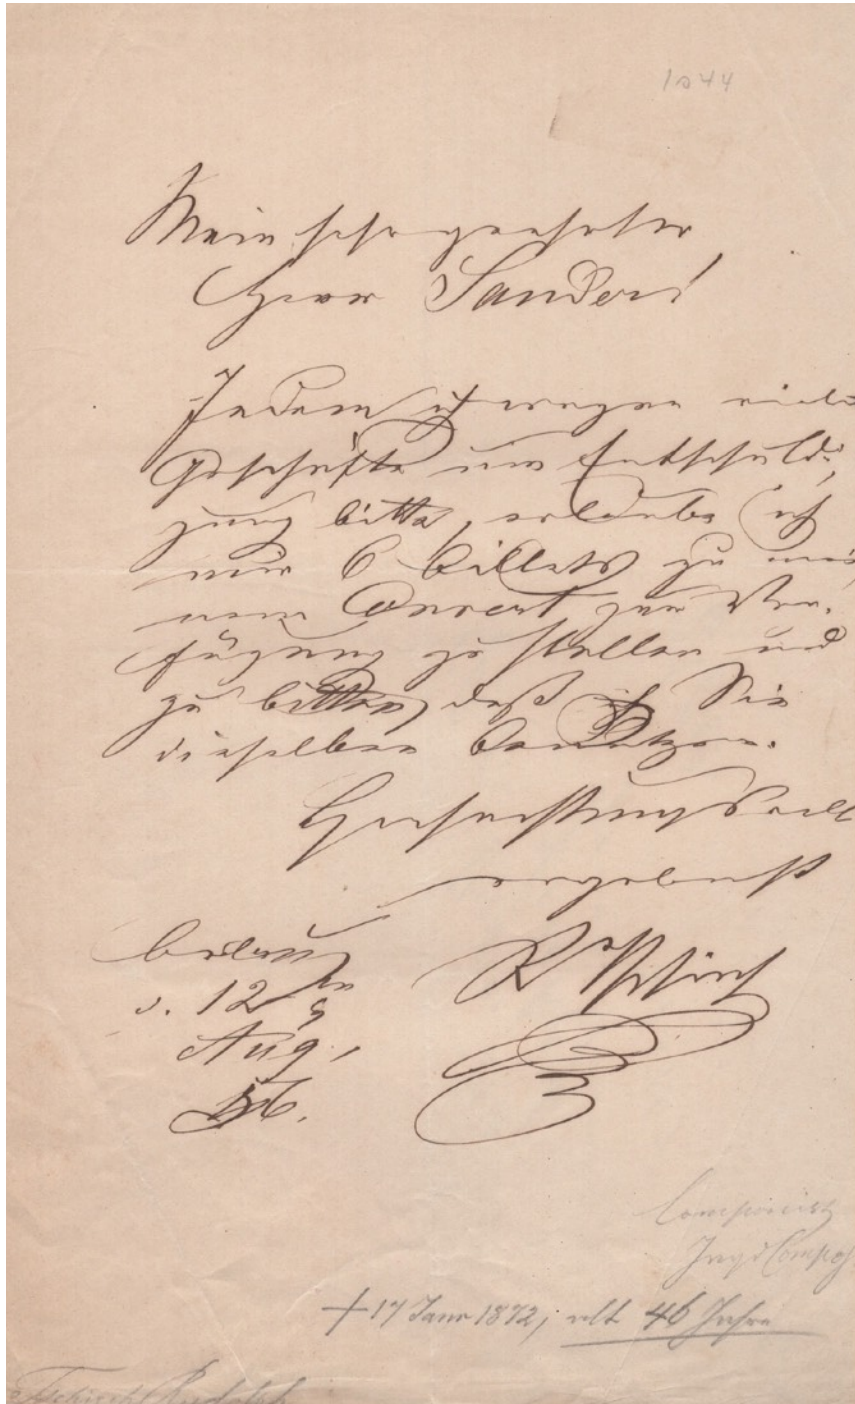 1044
Mein sehr geehrter
Herr Sander!
Indem ich wegen viele
Geschäfte um Entschuldi,
gung bitte, erlaube ich
mir 6 Billets zu mei,
nem Concert zur Ver,
fügung zu stellen und
zu bitten, daß Sie
dieselben benutzen.
Hochachtungsvoll
ergebenst
R Tschirch
d. 12
Aug.
56.
Componist
+ 17 Janr 1872, alt 46 Jahre
Tschirch Rudolph